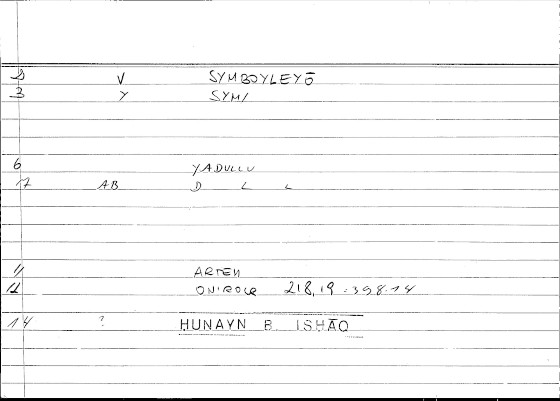 2 V SYMBOYLEYŌ
3 Y SYM/
6 YADULLU
7 AB D L L
11 ARTEM
12 ONIROCR 218,19 : 398.14
14 ? HUNAYN B. ISHĀQ